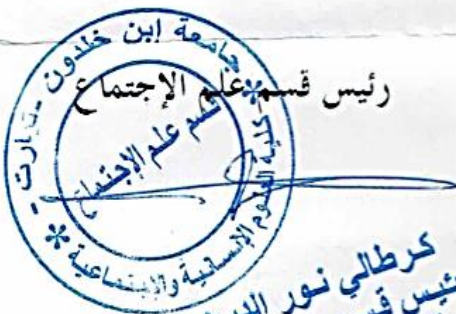 رئيس قسم علم الإجتماع
جامعة ابن خلدون - تيارت -
* كلية العلوم الإنسانية والإجتماعية *
قسم علم الإجتماع
كرطالي نور
رئيس